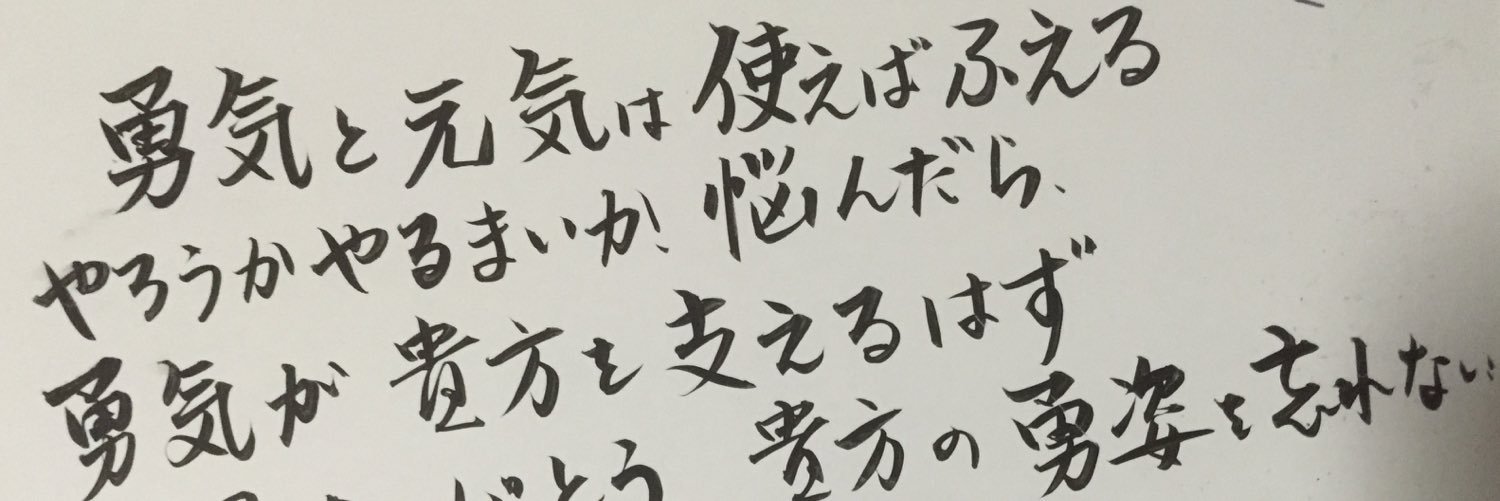 勇気と元気は使えばふえる
やろうかやるまいか！悩んだら、
勇気が貴方を支えるはず
とう 貴方の勇姿を忘れない